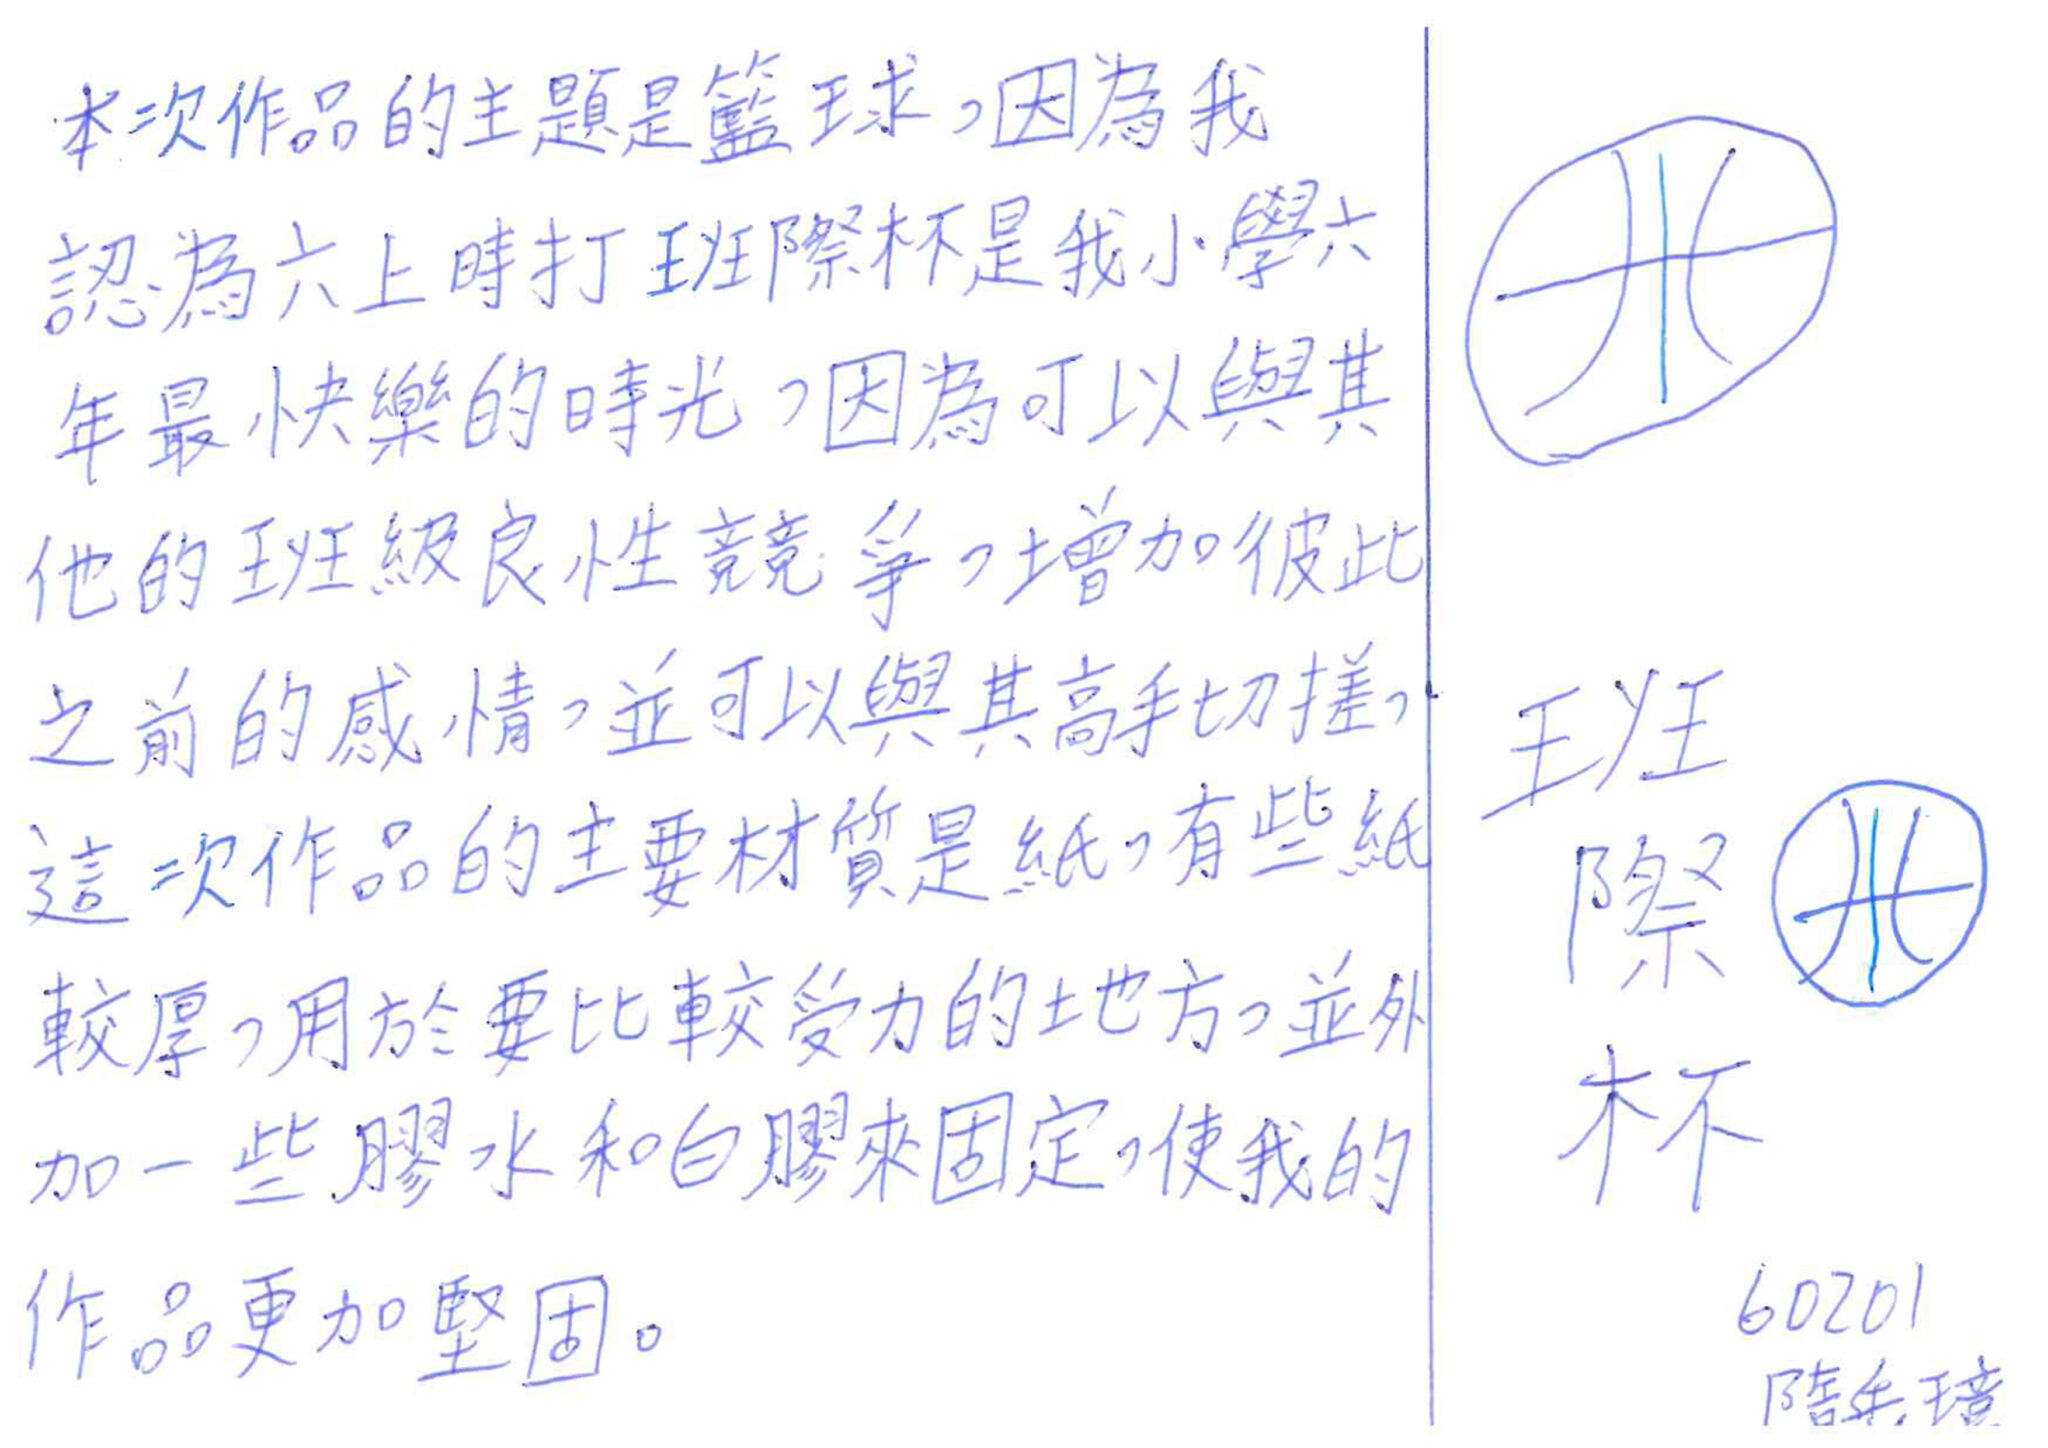 本次作品的主題是籃球，因為我
認為六上時打班際杯是我小學六
年最快樂的時光，因為可以與其
他的班級良性競爭，增加彼此
之前的感情，並可以與其高手切搓，
這次作品的主要材質是紙，有些紙
較厚，用於要比較受力的地方，並外
加一些膠水和白膠來固定，使我的
作品更加堅固。
班
際
杯
60201